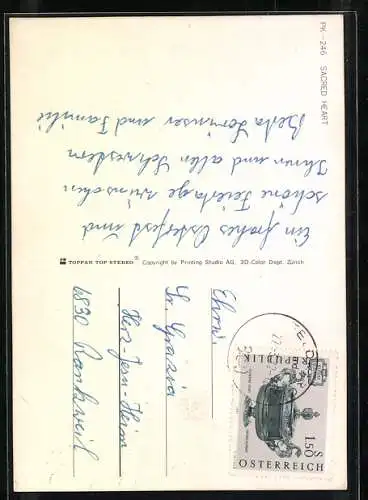 PK-246 SACRED HEART
Ein frohes Osterfest und
schöne Feiertage wünschen
Ihnen und allen Schwestern
Berta und Familie
TOPPAN TOP STEREO® Copyright by Printing Studio AG, 3D-Color Dept. Zürich
Ehrw.
Sr. Grazia
Herz-Jesu-Heim
6830 Rankweil
REPUBLIK
S 1.50
ÖSTERREICH